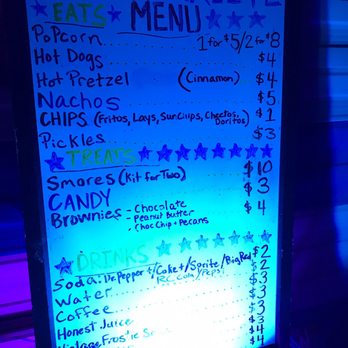 EATS MENU
Popcorn 1 for $5/2 for $8
Hot Dogs $4
Hot Pretzel (Cinnamon) $4
Nachos $5
CHIPS (Fritos, Lays, SunChips, Cheetos, Doritos) $1
Pickles $3
TREATS
Smores (Kit for Two) $10
CANDY $3
Brownies - Chocolate $4
- Peanut Butter
- Choc Chip + Pecans
DRINKS
Soda: Dr Pepper/Coke/Sprite/Big Red $2
RC Cola/Pepsi
Water $2
Coffee $3
Honest Juice $3
$4
$4